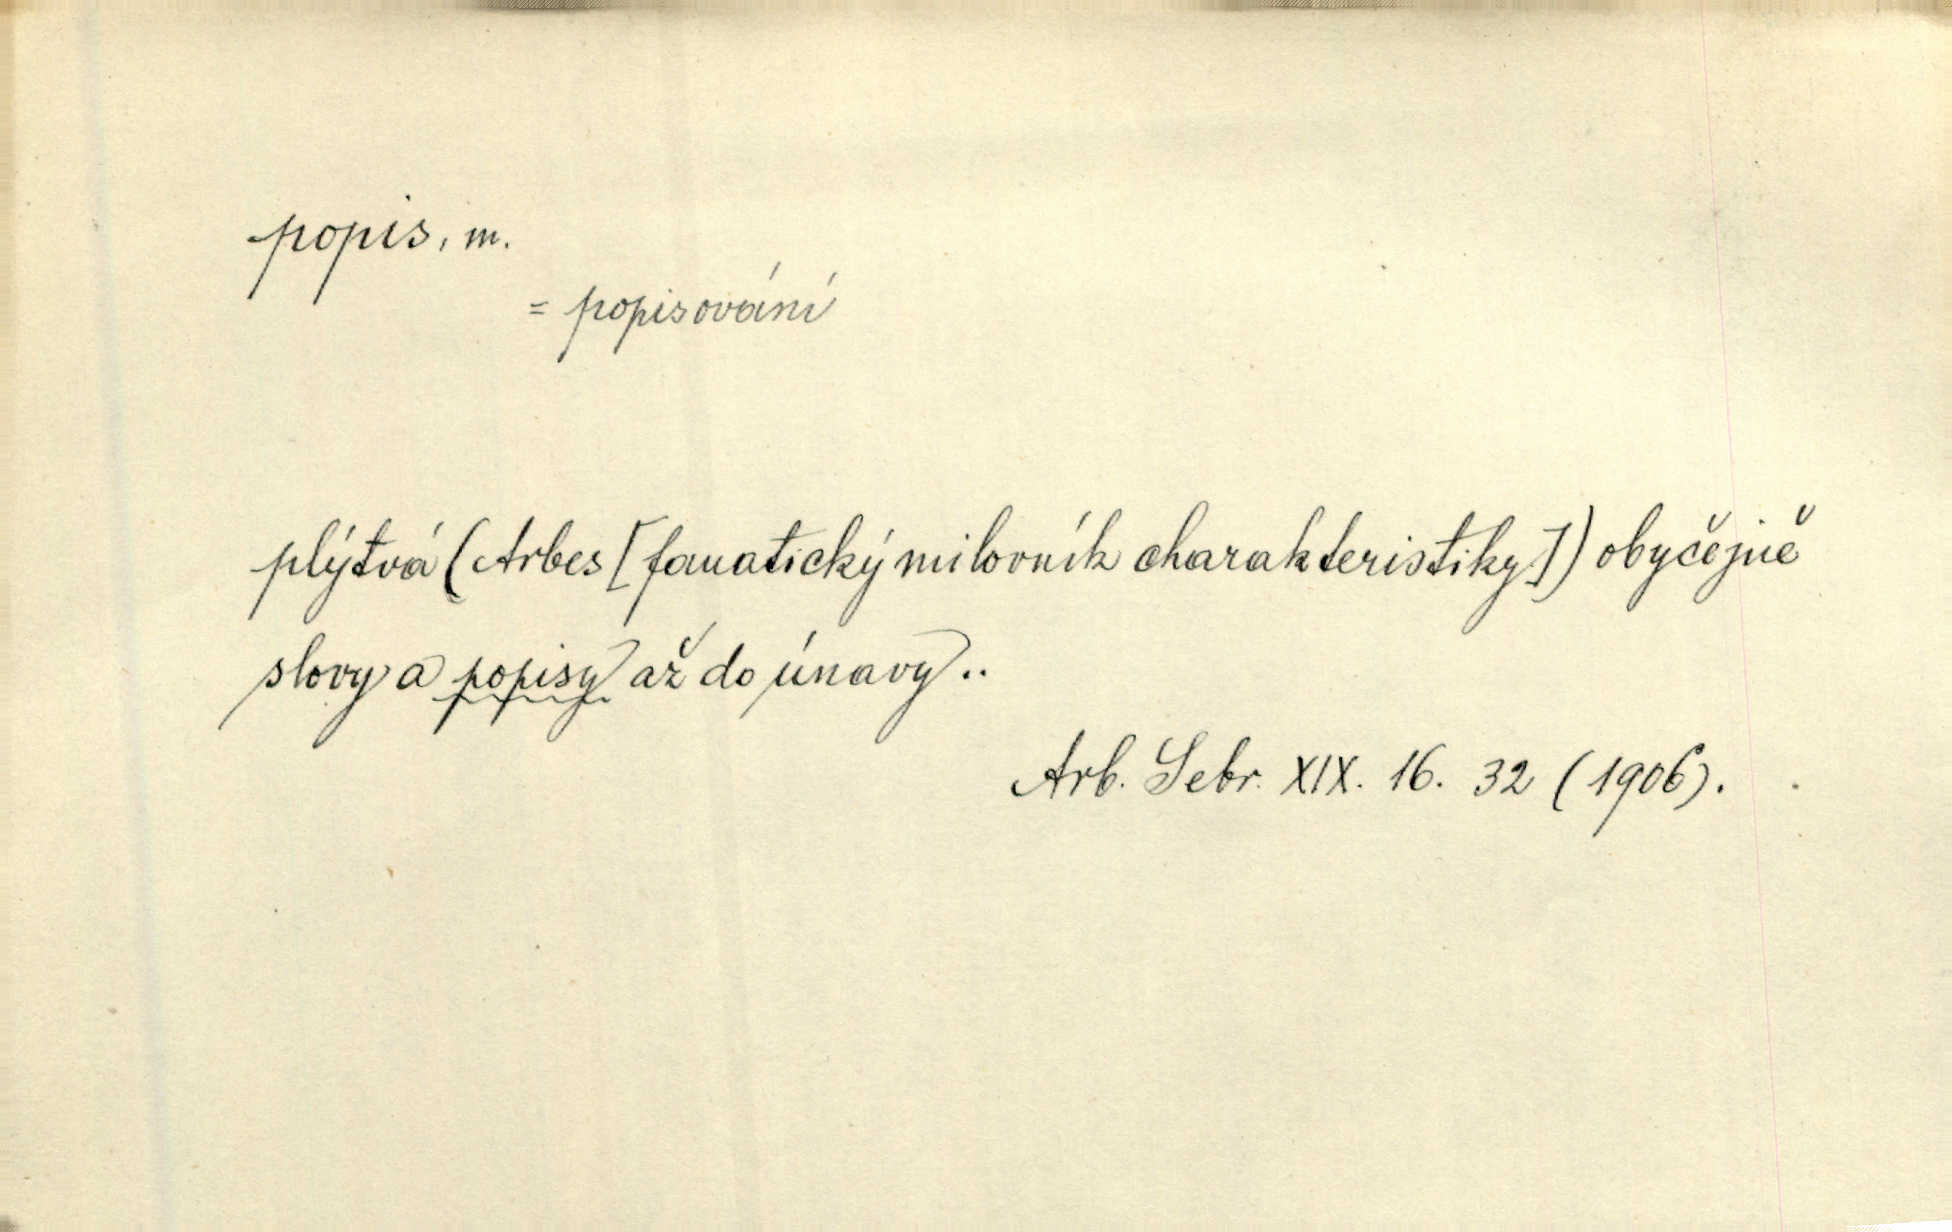 popis, m.
= popisování
plýtvá (Arbes [fanatický milovník charakteristiky]) obyčejně
slovy a popisy až do únavy..
Arb. Sebr. XIX. 16. 32 (1906).